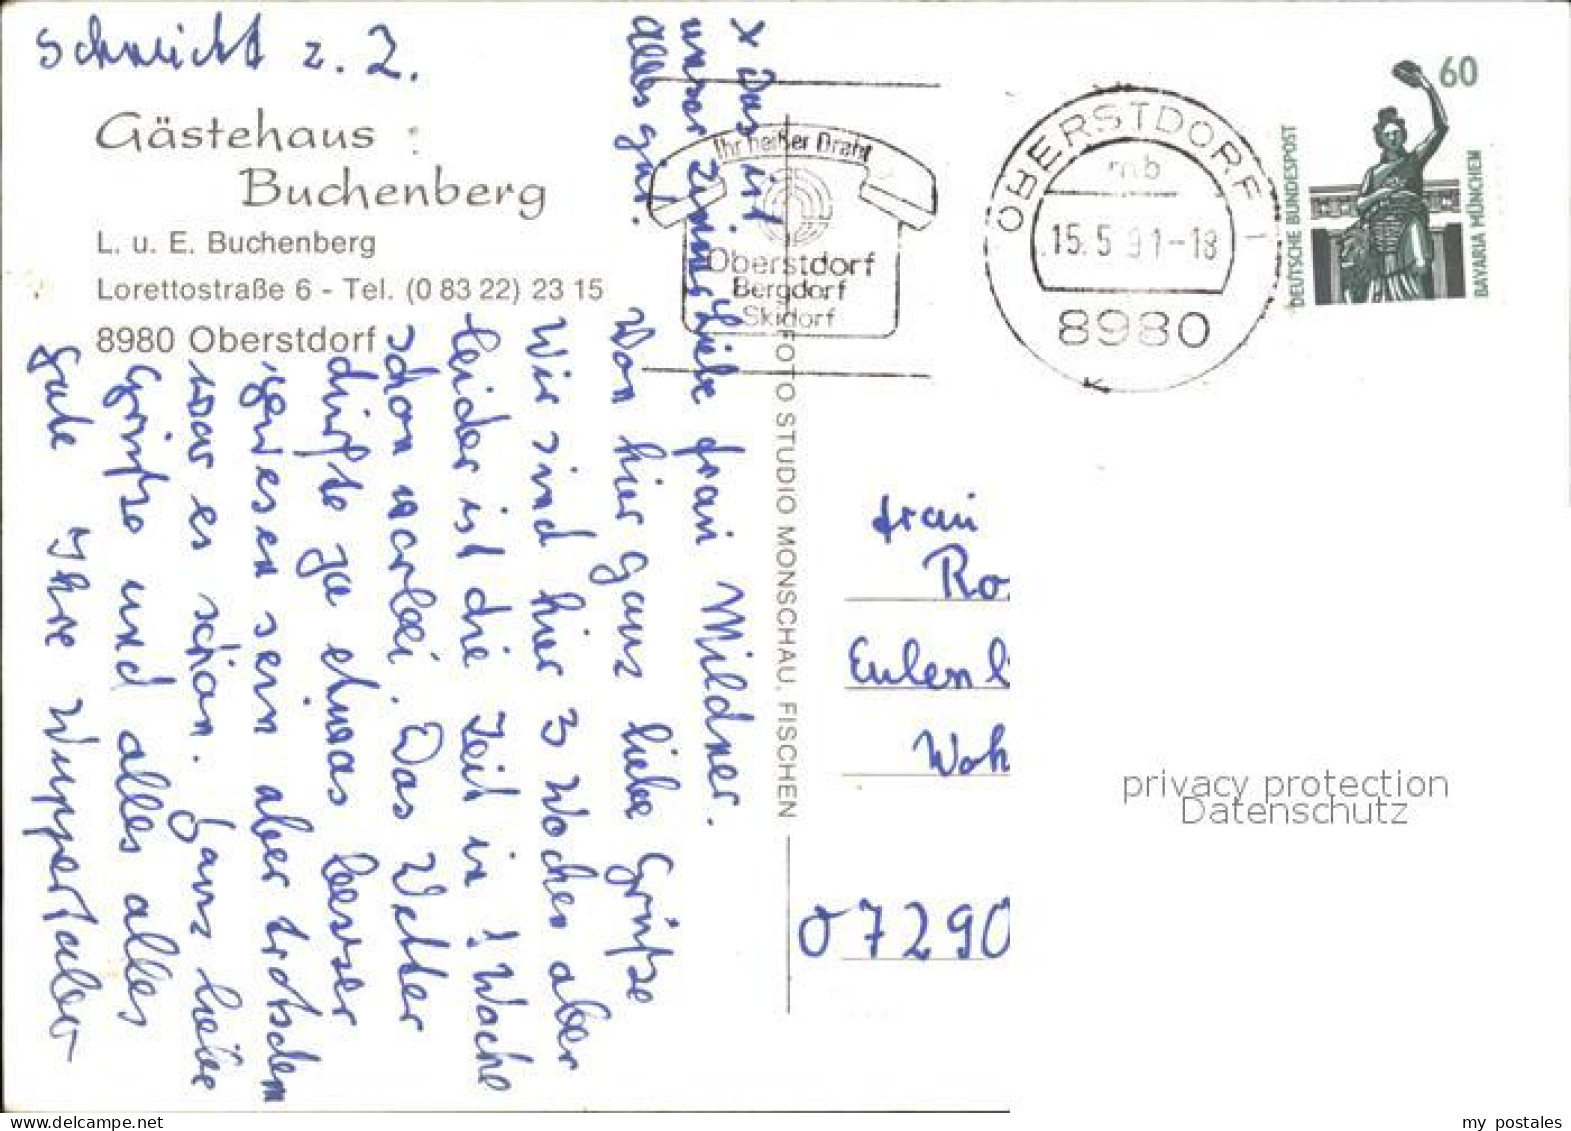 Schmeicht z. Z.
Gästehaus
Buchenberg
L. u. E. Buchenberg
Lorettostraße 6 - Tel. (0 83 22) 23 15
8980 Oberstdorf
x Das ist
unser Zimmer
alles gut.
Liebe Frau Mildner.
Von hier ganz liebe Grüße
Wir sind hier 3 Wochen aber
leider ist die Zeit in 1 Woche
schon vorbei. Das Wetter
dürfte ja etwas besser
gewesen sein aber trotzdem
war es schön. Ganz liebe
Grüße und alles alles
gute Ihre Wuppertaler
FOTO STUDIO MONSCHAU, FISCHEN
Ihr heißer Draht
Oberstdorf
Bergdorf
Skidorf
OBERSTDORF 1
mb
15.5.91-18
8980
60
DEUTSCHE BUNDESPOST
BAVARIA MÜNCHEN
Frau
Ro
Eulen
Woh
07290
privacy protection
Datenschutz
www.delcampe.net
my_postales